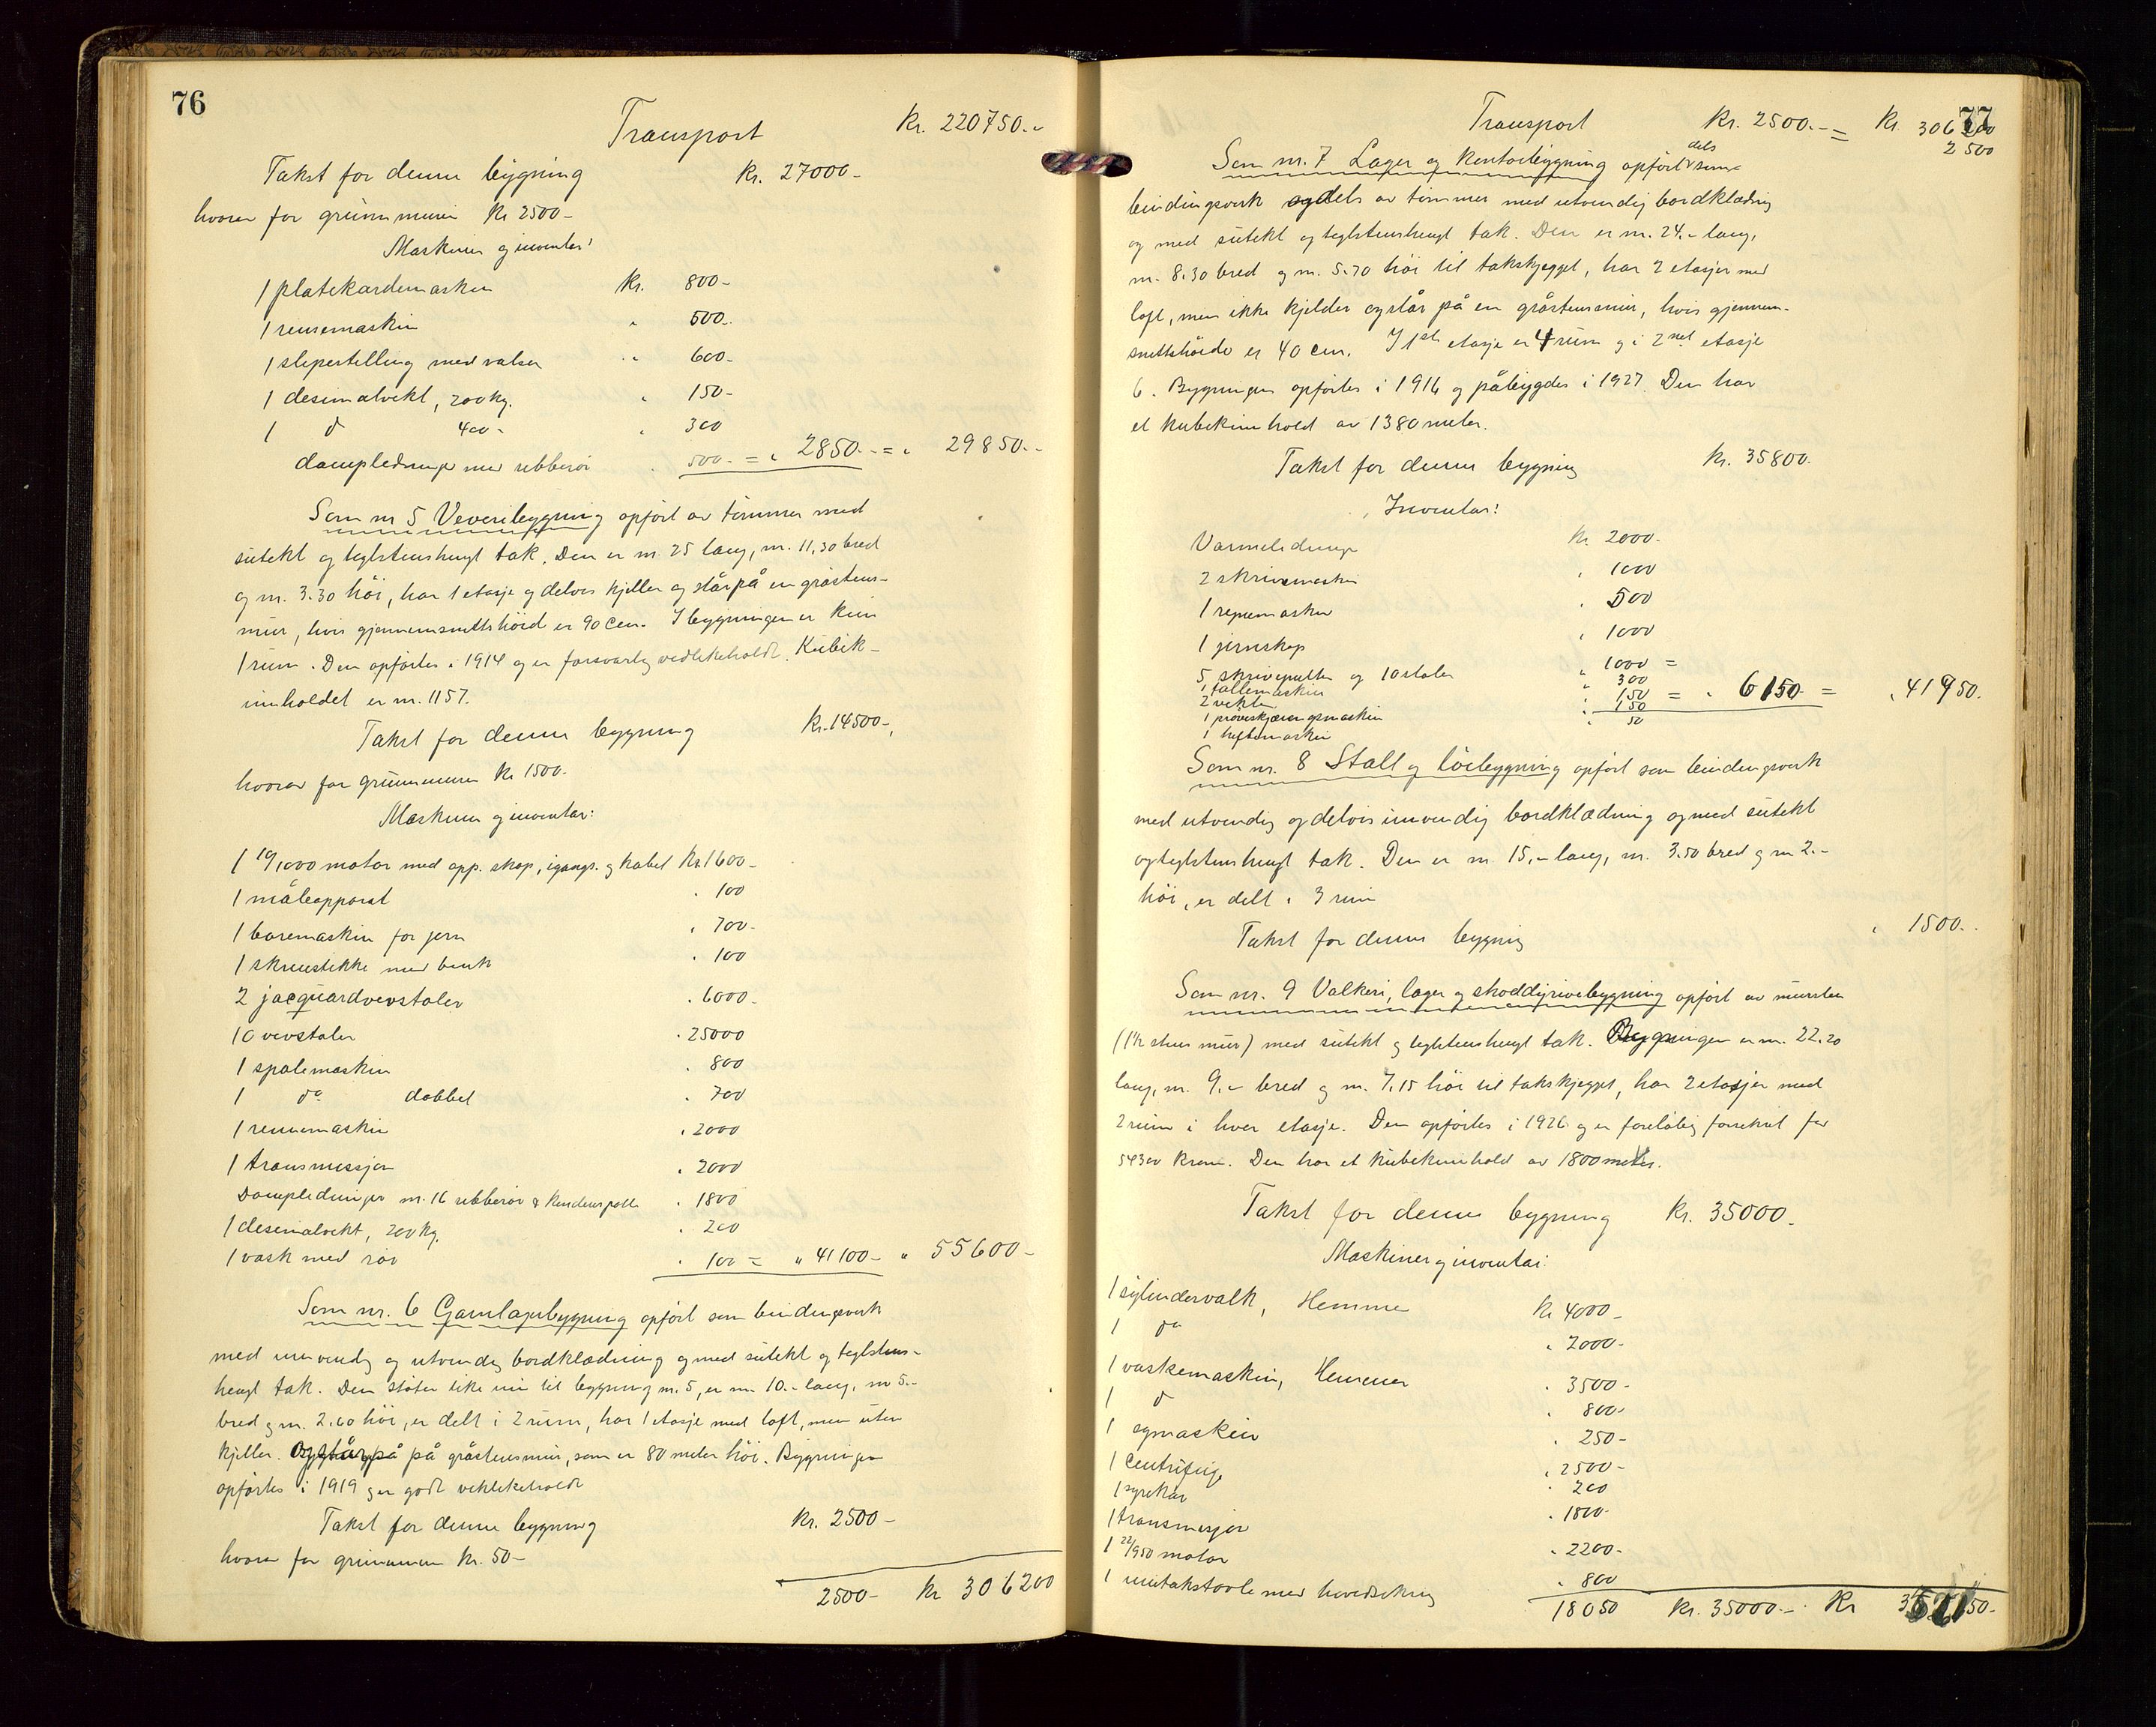 76
Transport Kr. 220750.-
Takst for denne bygning Kr. 27000-
hvorav for grunnmuren Kr 2500-
Maskiner og inventar:
1 platekardemaskin Kr. 800-
1 rensemaskin " 500-
1 slipestelling med valser " 600-
1 desimalvekt, 200 kg. " 150-
1 do 400- " 300
dampledninger med ribberör " 500.- = " 2850.- = " 29850.-
Som nr 5 Veveribygning opfört av tömmer med
sutekt og teglstenshengt tak. Den er m. 25 lang, m. 11,30 bred
og m. 3.30 höi, har 1 etasje og delvis kjeller og står på en gråstens-
mur, hvis gjennemsnittshöide er 90 cm. I bygningen er kun
1 rum. Den opförtes i 1914 og er forsvarlig vedlikeholdt. Kubik-
innholdet er m. 1157.
Takst for denne bygning Kr. 14500-,
hvorav for grunnmuren Kr 1500.
Maskiner og inventar:
1 19/1000 motor med opp. skap, igangs. og kabel Kr. 1600-
1 måleapparat " 100
1 boremaskin for jern " 700-
1 skruestikke med benk " 100
2 jacquardvevstoler " 6000-
10 vevstoler " 25000
1 spolemaskin " 800
1 do dobbel " 700
1 rennemaskin " 2000
1 transmissjon " 2000
Dampledninger m. 16 ribberör & kondenspotte " 1800
1 desimalvekt, 200 kg. " 200
1 vask med rör " 100 = " 41100- " 55600-
Som nr. 6 Garnlagerbygning opfört som bindingsverk
med innvendig og utvendig bordklædning og med sutekt og teglstens-
hengt tak. Den stöter like inn til bygning nr. 5, er m. 10.- lang, m 5.-
bred og m. 2.60 höi, er delt i 2 rum, har 1 etasje med loft, men uten
kjeller. Og står på på gråstensmur, som er 80 meter höi. Bygningen
opförtes i 1919 og er godt vedlikeholdt
Takst for denne bygning Kr. 2500-
hvorav for grunnmuren Kr. 50-
2500- Kr 306200
77
Transport Kr. 2500.- = Kr 306200
2500
Som nr. 7 Lager og kontorbygning opfört dels som
bindingsverk og dels av tömmer med utvendig bordklædning
og med sutekt og teglstenshengt tak. Den er m. 24.- lang,
m. 8.30 bred og m. 5.70 höi til takskjegget, har 2 etasjer med
loft, men ikke kjelder og står på en gråstensmur, hvis gjennem-
snittshöide er 40 cm. I 1ste etasje er 4 rum og i 2net etasje
6. Bygningen opförtes i 1916 og påbygdes i 1927. Den har
et kubikinnhold av 1380 meter.
Takst for denne bygning Kr. 35800.
Inventar:
Varmeledninger Kr. 2000-
2 skrivemaskin " 1000
1 regnemaskin " 500
1 jernskap " 1000
5 skrivepulter og 10 stoler " 1000 =
1 tallemaskin " 300
2 vekter " 150 = " 6150- = " 41950.
1 pröveskjæringsmaskin " 150
1 heftemaskin " 50
Som nr. 8 Stall og löebygning opfört som bindingsverk
med utvendig og delvis innvendig bordklædning og med sutekt
og teglstenshengt tak. Den er m 15.- lang, m. 3.50 bred og m 2.-
höi, er delt i 3 rum
Takst for denne bygning " 1500.-
Som nr. 9 Valkeri, lager og shoddyrivebygning opfört av mursten
(1½ stens mur) med sutekt og teglstenshengt tak. Bygningen er m. 22.20
lang, m. 9.- bred og m. 7.15 höi til takskjegget, har 2 etasjer med
2 rum i hver etasje. Den opförtes i 1926 og er forelöbig forsikret for
54300 kroner. Den har et kubikinnhold av 1800 meter.
Takst for denne bygning Kr. 35000-
Maskiner og inventar:
1 sylindervalk, Hemmer Kr 4000-
1 do " 2000-
1 vaskemaskin, Hemmer " 3500-
1 do " 800-
1 symaskin " 250-
1 Centrifuge " 2500-
1 syrekar " 200
1 transmisjon " 1800-
1 22/950 motor " 2200-
1 inntakstavle med hovedsikring " 800
18050 Kr. 35000.- Kr